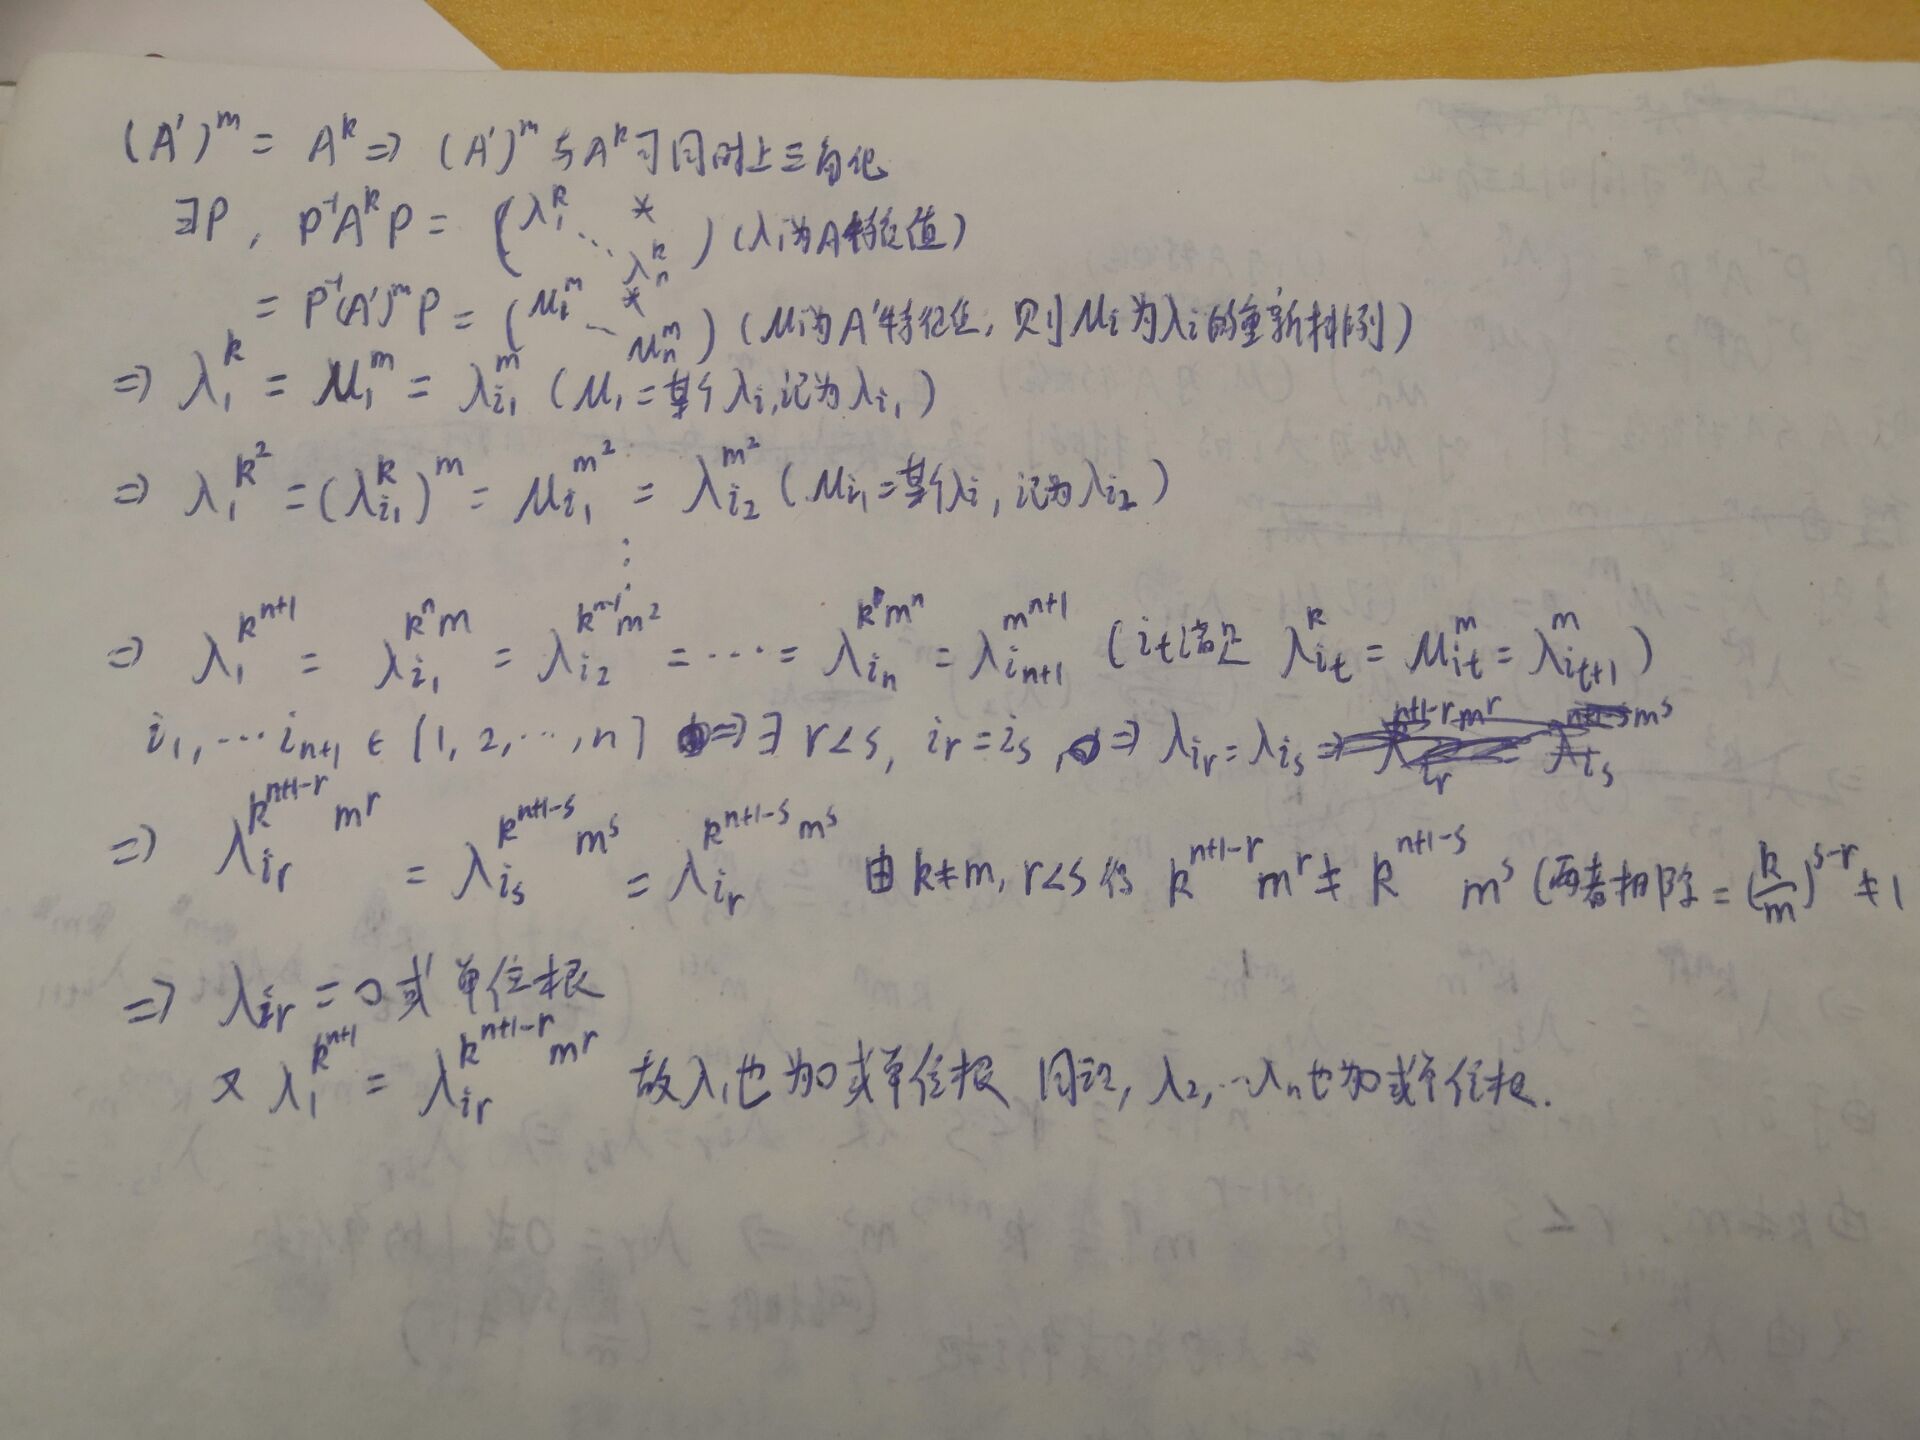 (A')^m = A^k ⇒ (A')^m 与 A^k 可同时上三角化
∃P, P⁻¹A^kP = (λ₁^k ⋱ * λₙ^k) (λᵢ为A特征值)
= P⁻¹(A')^mP = (μ₁^m ⋱ * μₙ^m) (μᵢ为A'特征值, 则μᵢ为λᵢ的重新排列)
⇒ λ₁^k = μ₁^m = λ_{i₁}^m (μ₁=某个λᵢ,记为λ_{i₁})
⇒ λ₁^{k²} = (λ_{i₁}^k)^m = μ_{i₁}^{m²} = λ_{i₂}^{m²} (μ_{i₁}=某个λᵢ, 记为λ_{i₂})
⋮
⇒ λ₁^{k^{n+1}} = λ_{i₁}^{k^n m} = λ_{i₂}^{k^{n-1}m²} = ⋯ = λ_{iₙ}^{k m^n} = λ_{i_{n+1}}^{m^{n+1}} (i_t满足 λ_{i_t}^k = μ_{i_t}^m = λ_{i_{t+1}}^m)
i₁,⋯i_{n+1} ∈ {1,2,⋯,n} ⇒ ∃ r<s, i_r=i_s, ⇒ λ_{i_r}=λ_{i_s}
⇒ λ_{i_r}^{k^{n+1-r}m^r} = λ_{i_s}^{k^{n+1-s}m^s} = λ_{i_r}^{k^{n+1-s}m^s} 由k≠m, r<s得 k^{n+1-r}m^r ≠ k^{n+1-s}m^s (两者相除=(k/m)^{s-r}≠1
⇒ λ_{i_r} = 0或单位根
又 λ₁^{k^{n+1}} = λ_{i_r}^{k^{n+1-r}m^r} 故λ₁也为0或单位根 同证, λ₂,⋯λₙ也为0或单位根.